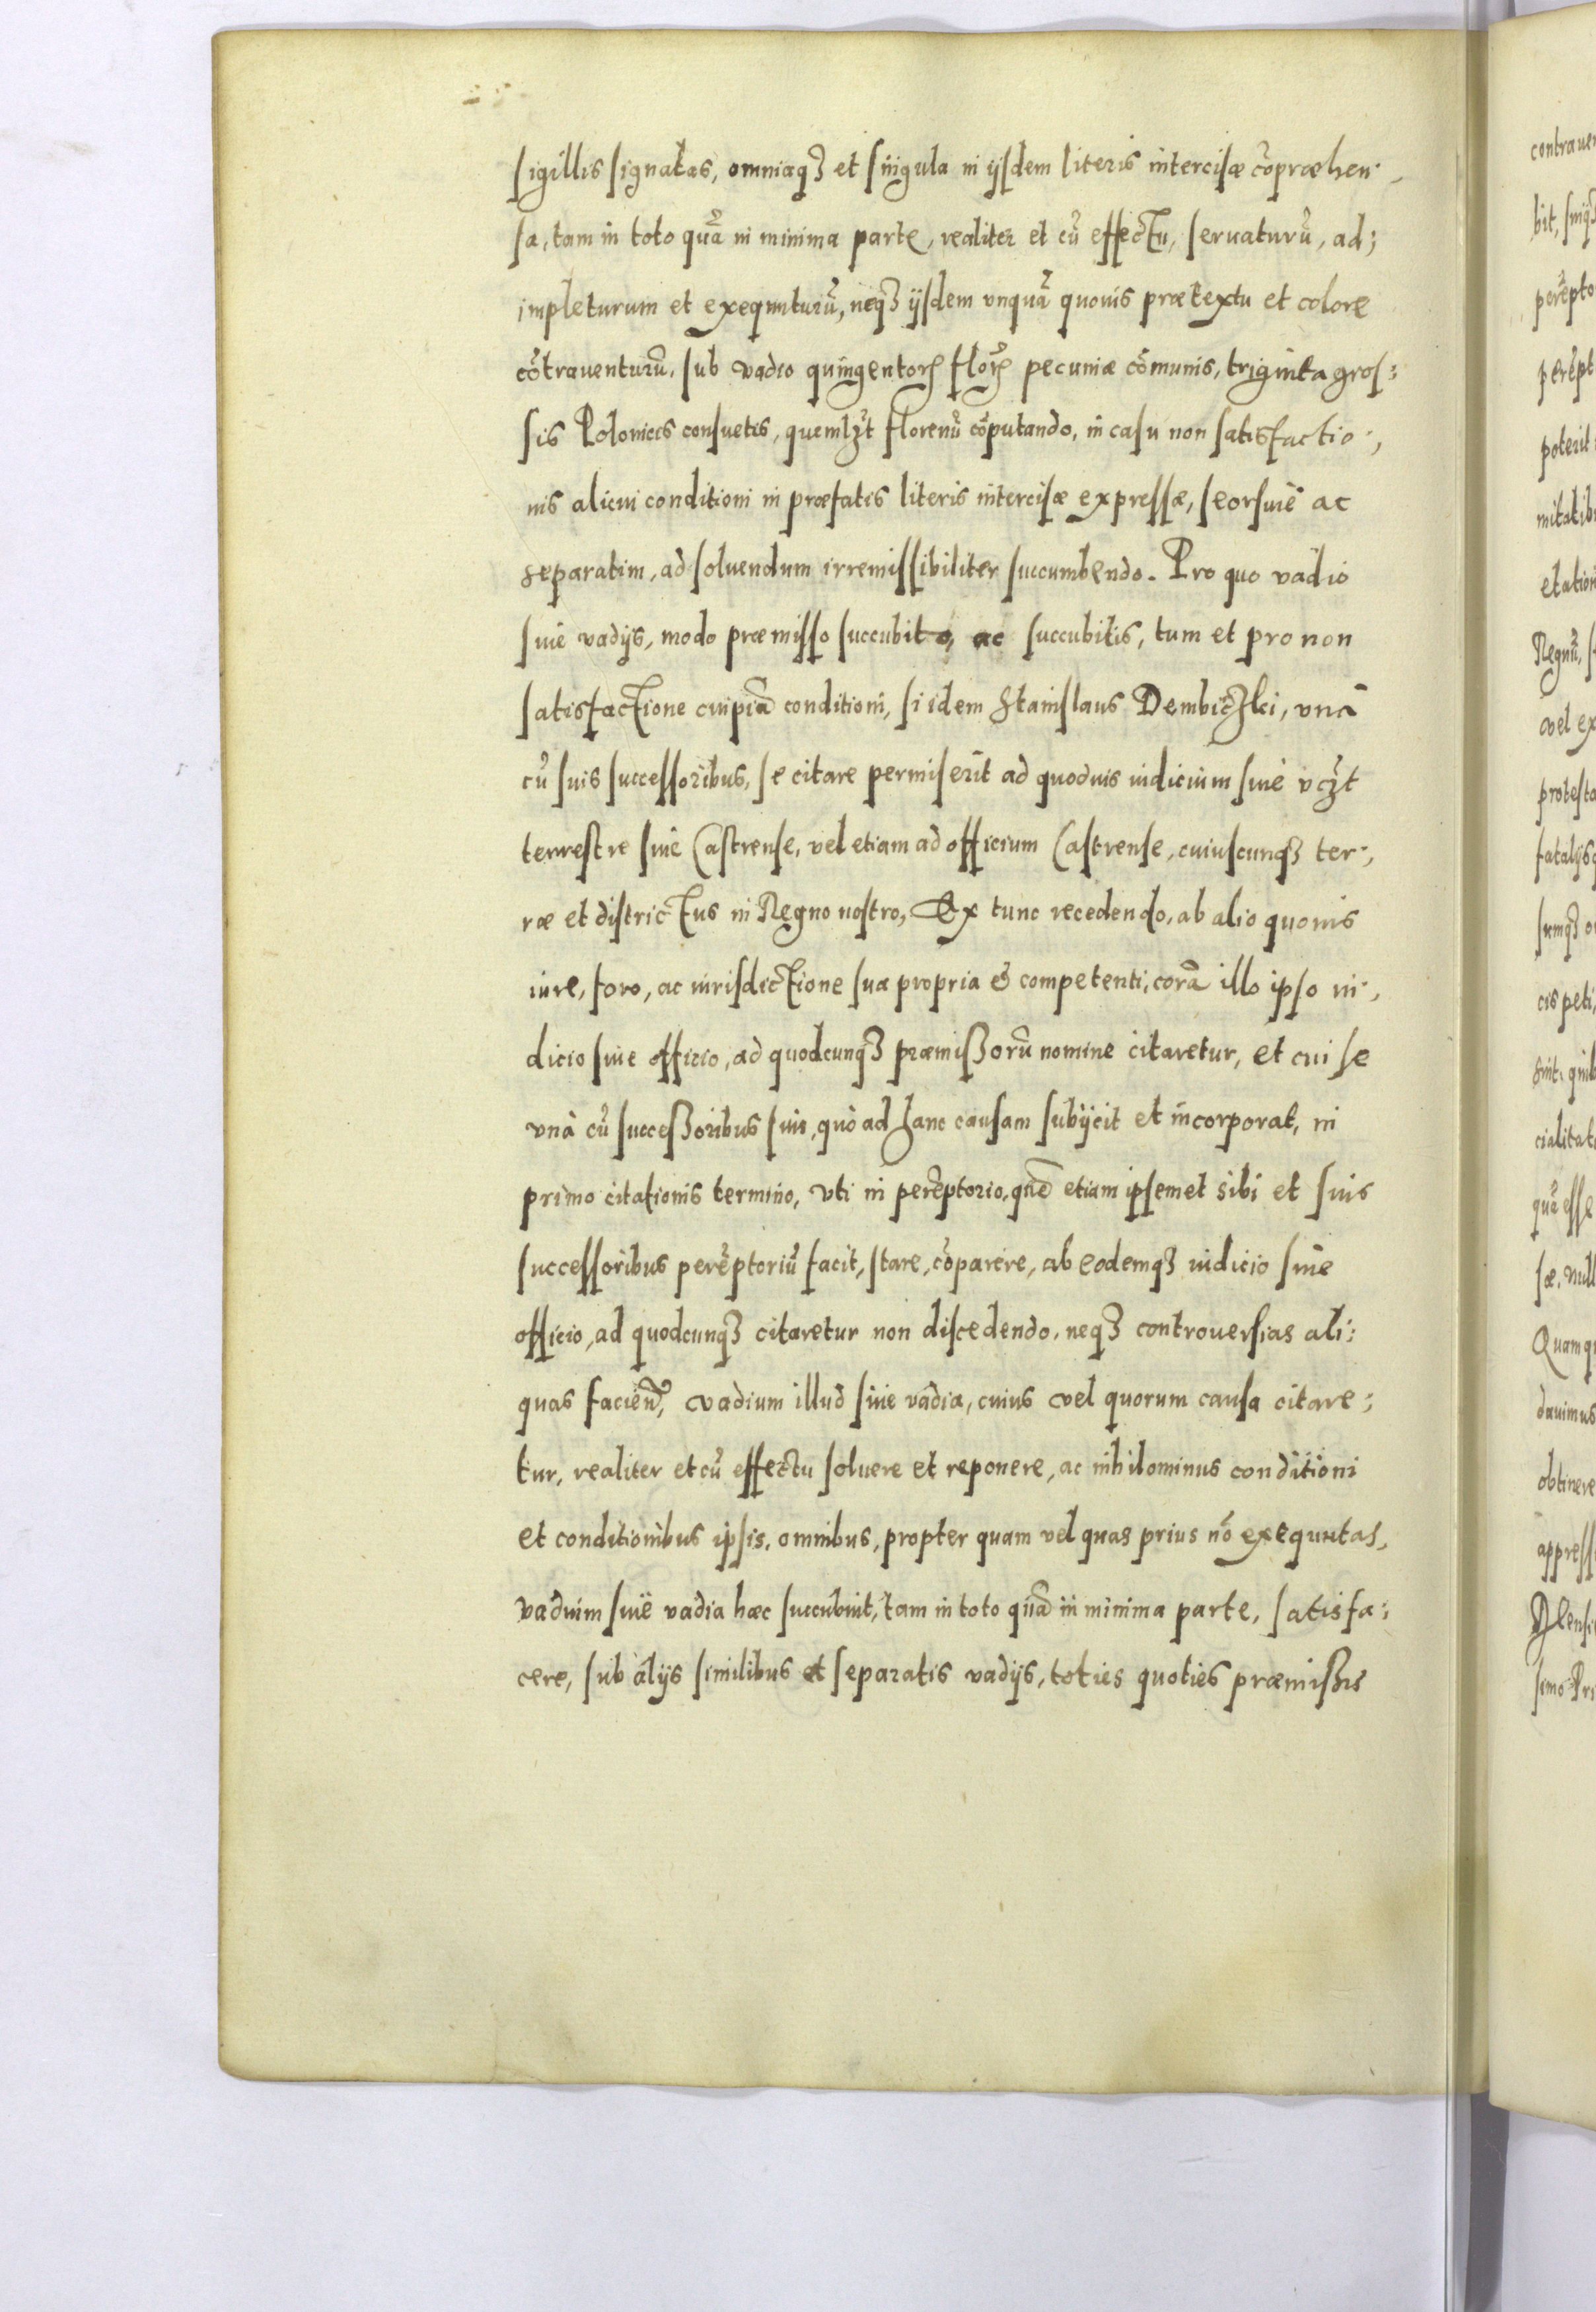 sigillis signatas, omniaqꝫ et singula in ijsdem literis intercisæ cõpræhen-
sa, tam in toto quã in minima parte, realiter et cũ effectu, seruaturũ, ad;
impleturum et exequuturũ, neqꝫ ijsdem vnquã quouis prætextu et colore
cõtrauenturũ, sub vadio quingentorꝝ florꝝ pecuniæ cõmunis, triginta gros;
sis Polonicis consuetis, quemlꝫt florenũ cõputando, in casu non satisfactio-,
nis alicui conditioni in præfatis literis intercisæ expressæ, seorsiuè ac
separatim, ad soluendum irremissibiliter succumbendo. Pro quo vadio
siue vadijs, modo præmisso succubito, ac succubitis, tum et pro non
satisfactione cuipiã conditioni, si idem Stanislaus Dembiczki, vnà
cũ suis successoribus, se citare permiserit ad quoduis iudicium siuè vcꝫt
terrestre siuè Castrense, vel etiam ad officium Castrense, cuiuscunqꝫ ter-,
ræ et districtus in Regno nostro, Ex tunc recedendo, ab alio quouis
iure, foro, ac iurisdictione sua propria & competenti, corã illo ipso iu-,
dicio siue officio, ad quodcunqꝫ præmißorũ nomine citaretur, et cui se
vnà cũ succeßoribus suis, quò ad hanc causam subijcit et incorporat, in
primo citationis termino, vti in perẽptorio, quẽ etiam ipsemet sibi et suis
successoribus perẽptoriũ facit, stare, cõparere, ab eodemqꝫ iudicio siuè
officio, ad quodcunqꝫ citaretur non discedendo, neqꝫ controuersias ali;
quas faciend, vadium illud siue vadia, cuius vel quorum causa citare;
tur, realiter et cũ effectu soluere et reponere, ac nihilominus conditioni
et conditionibus ipsis, omnibus, propter quam vel quas prius nõ exequutas,
vadium siuè vadia hæc succubuit, tam in toto quã in minima parte, satisfa;
cere, sub alijs similibus et separatis vadijs, toties quoties præmißis